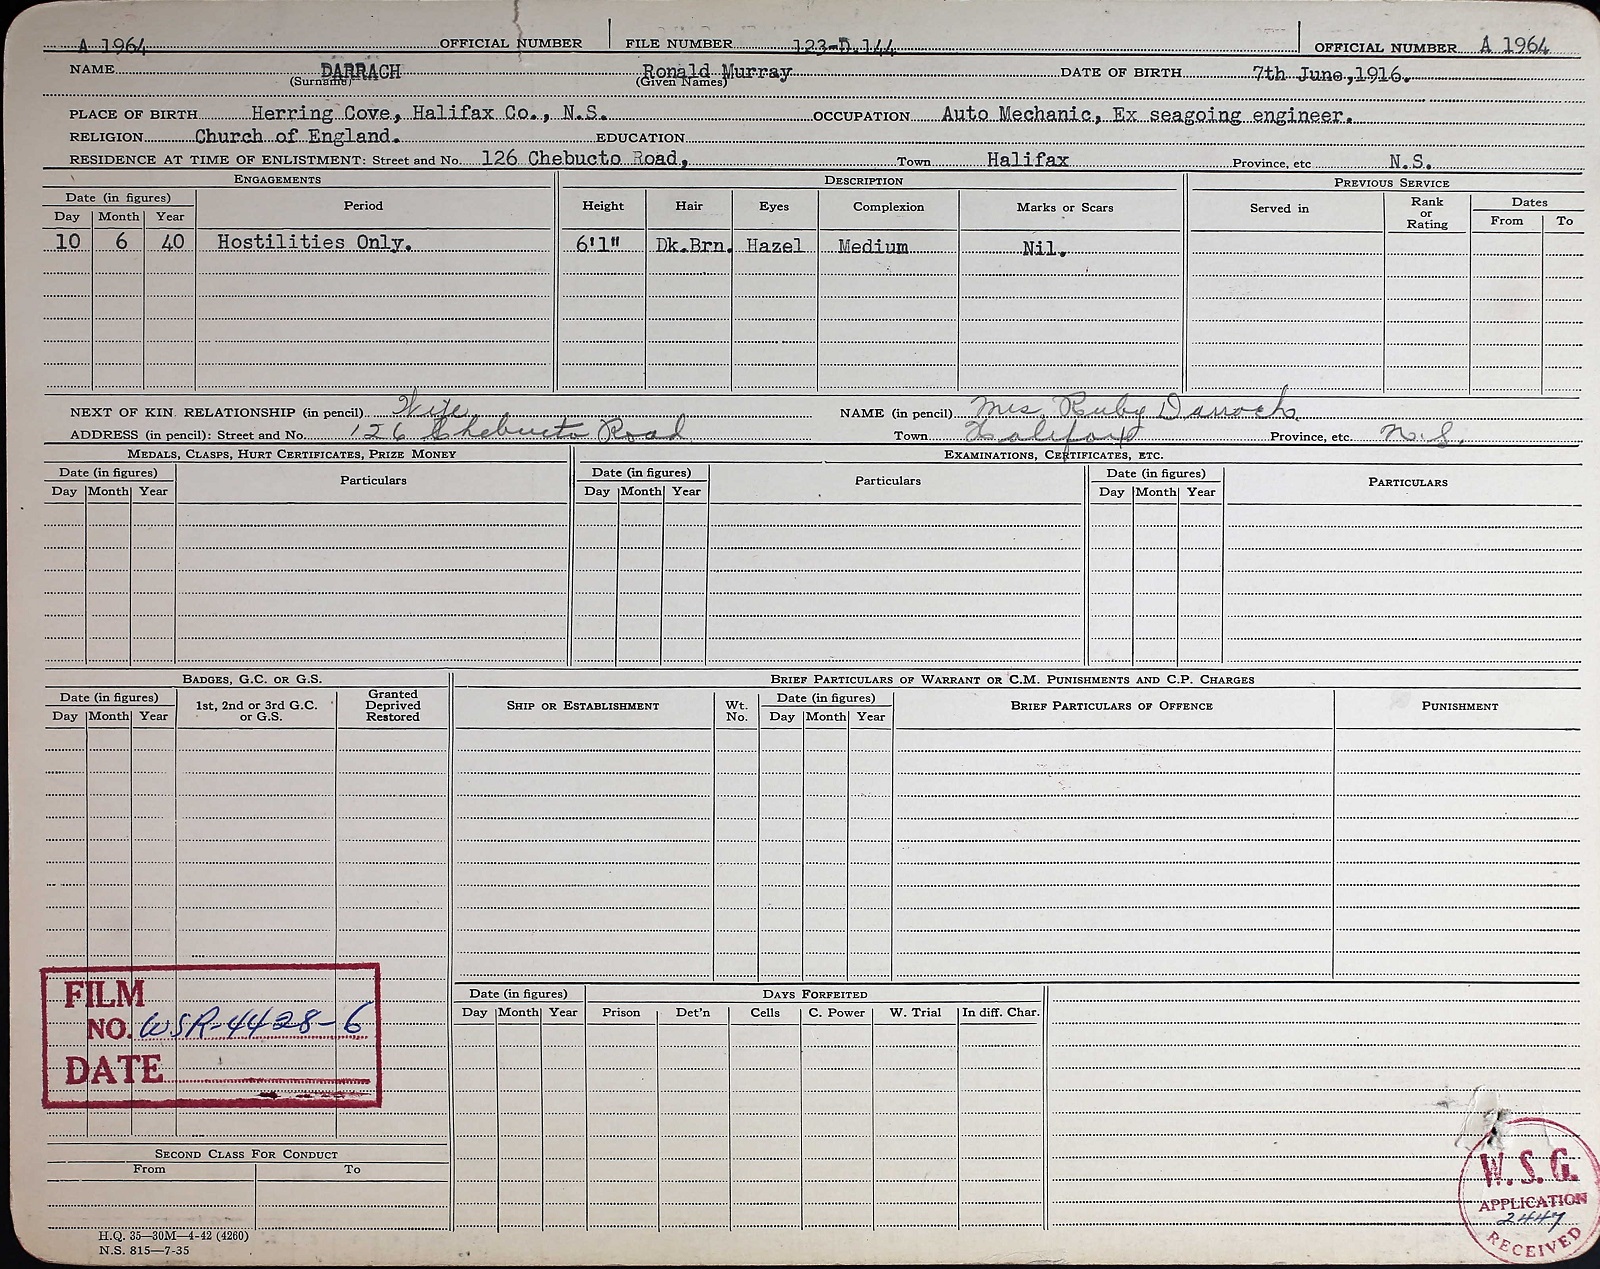 A 1964 OFFICIAL NUMBER FILE NUMBER 123-D.144 OFFICIAL NUMBER A 1964
NAME DARRACH Ronald Murray DATE OF BIRTH 7th June,1916.
(Surname) (Given Names)
PLACE OF BIRTH Herring Cove, Halifax Co., N.S. OCCUPATION Auto Mechanic, Ex seagoing engineer.
RELIGION Church of England. EDUCATION
RESIDENCE AT TIME OF ENLISTMENT: Street and No. 126 Chebucto Road, Town Halifax Province, etc N.S.
ENGAGEMENTS DESCRIPTION PREVIOUS SERVICE
Date (in figures) Period Height Hair Eyes Complexion Marks or Scars Served in Rank or Rating Dates
Day Month Year From To
10 6 40 Hostilities Only. 6'1" Dk.Brn. Hazel Medium Nil.
NEXT OF KIN RELATIONSHIP (in pencil) Wife NAME (in pencil) Mrs. Ruby Darrach
ADDRESS (in pencil): Street and No. 126 Chebucto Road Town Halifax Province, etc. N.S.
MEDALS, CLASPS, HURT CERTIFICATES, PRIZE MONEY EXAMINATIONS, CERTIFICATES, ETC.
Date (in figures) Particulars Date (in figures) Particulars Date (in figures) PARTICULARS
Day Month Year Day Month Year Day Month Year
BADGES, G.C. OR G.S. BRIEF PARTICULARS OF WARRANT OR C.M. PUNISHMENTS AND C.P. CHARGES
Date (in figures) 1st, 2nd or 3rd G.C. or G.S. Granted Deprived Restored SHIP OR ESTABLISHMENT Wt. No. Date (in figures) BRIEF PARTICULARS OF OFFENCE PUNISHMENT
Day Month Year Day Month Year
FILM
NO. WSR-4428-6
DATE
Date (in figures) DAYS FORFEITED
Day Month Year Prison Det'n Cells C. Power W. Trial In diff. Char.
SECOND CLASS FOR CONDUCT
From To
W.S.G.
APPLICATION
2447
RECEIVED
H.Q. 35—30M—4-42 (4260)
N.S. 815—7-35